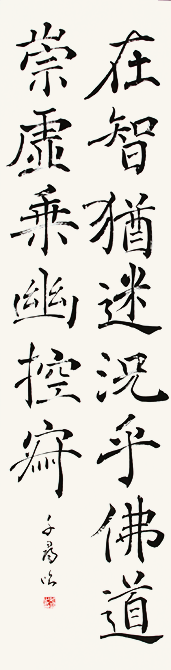 在智猶迷況乎佛道
崇虛乗幽控寂
千尋臨